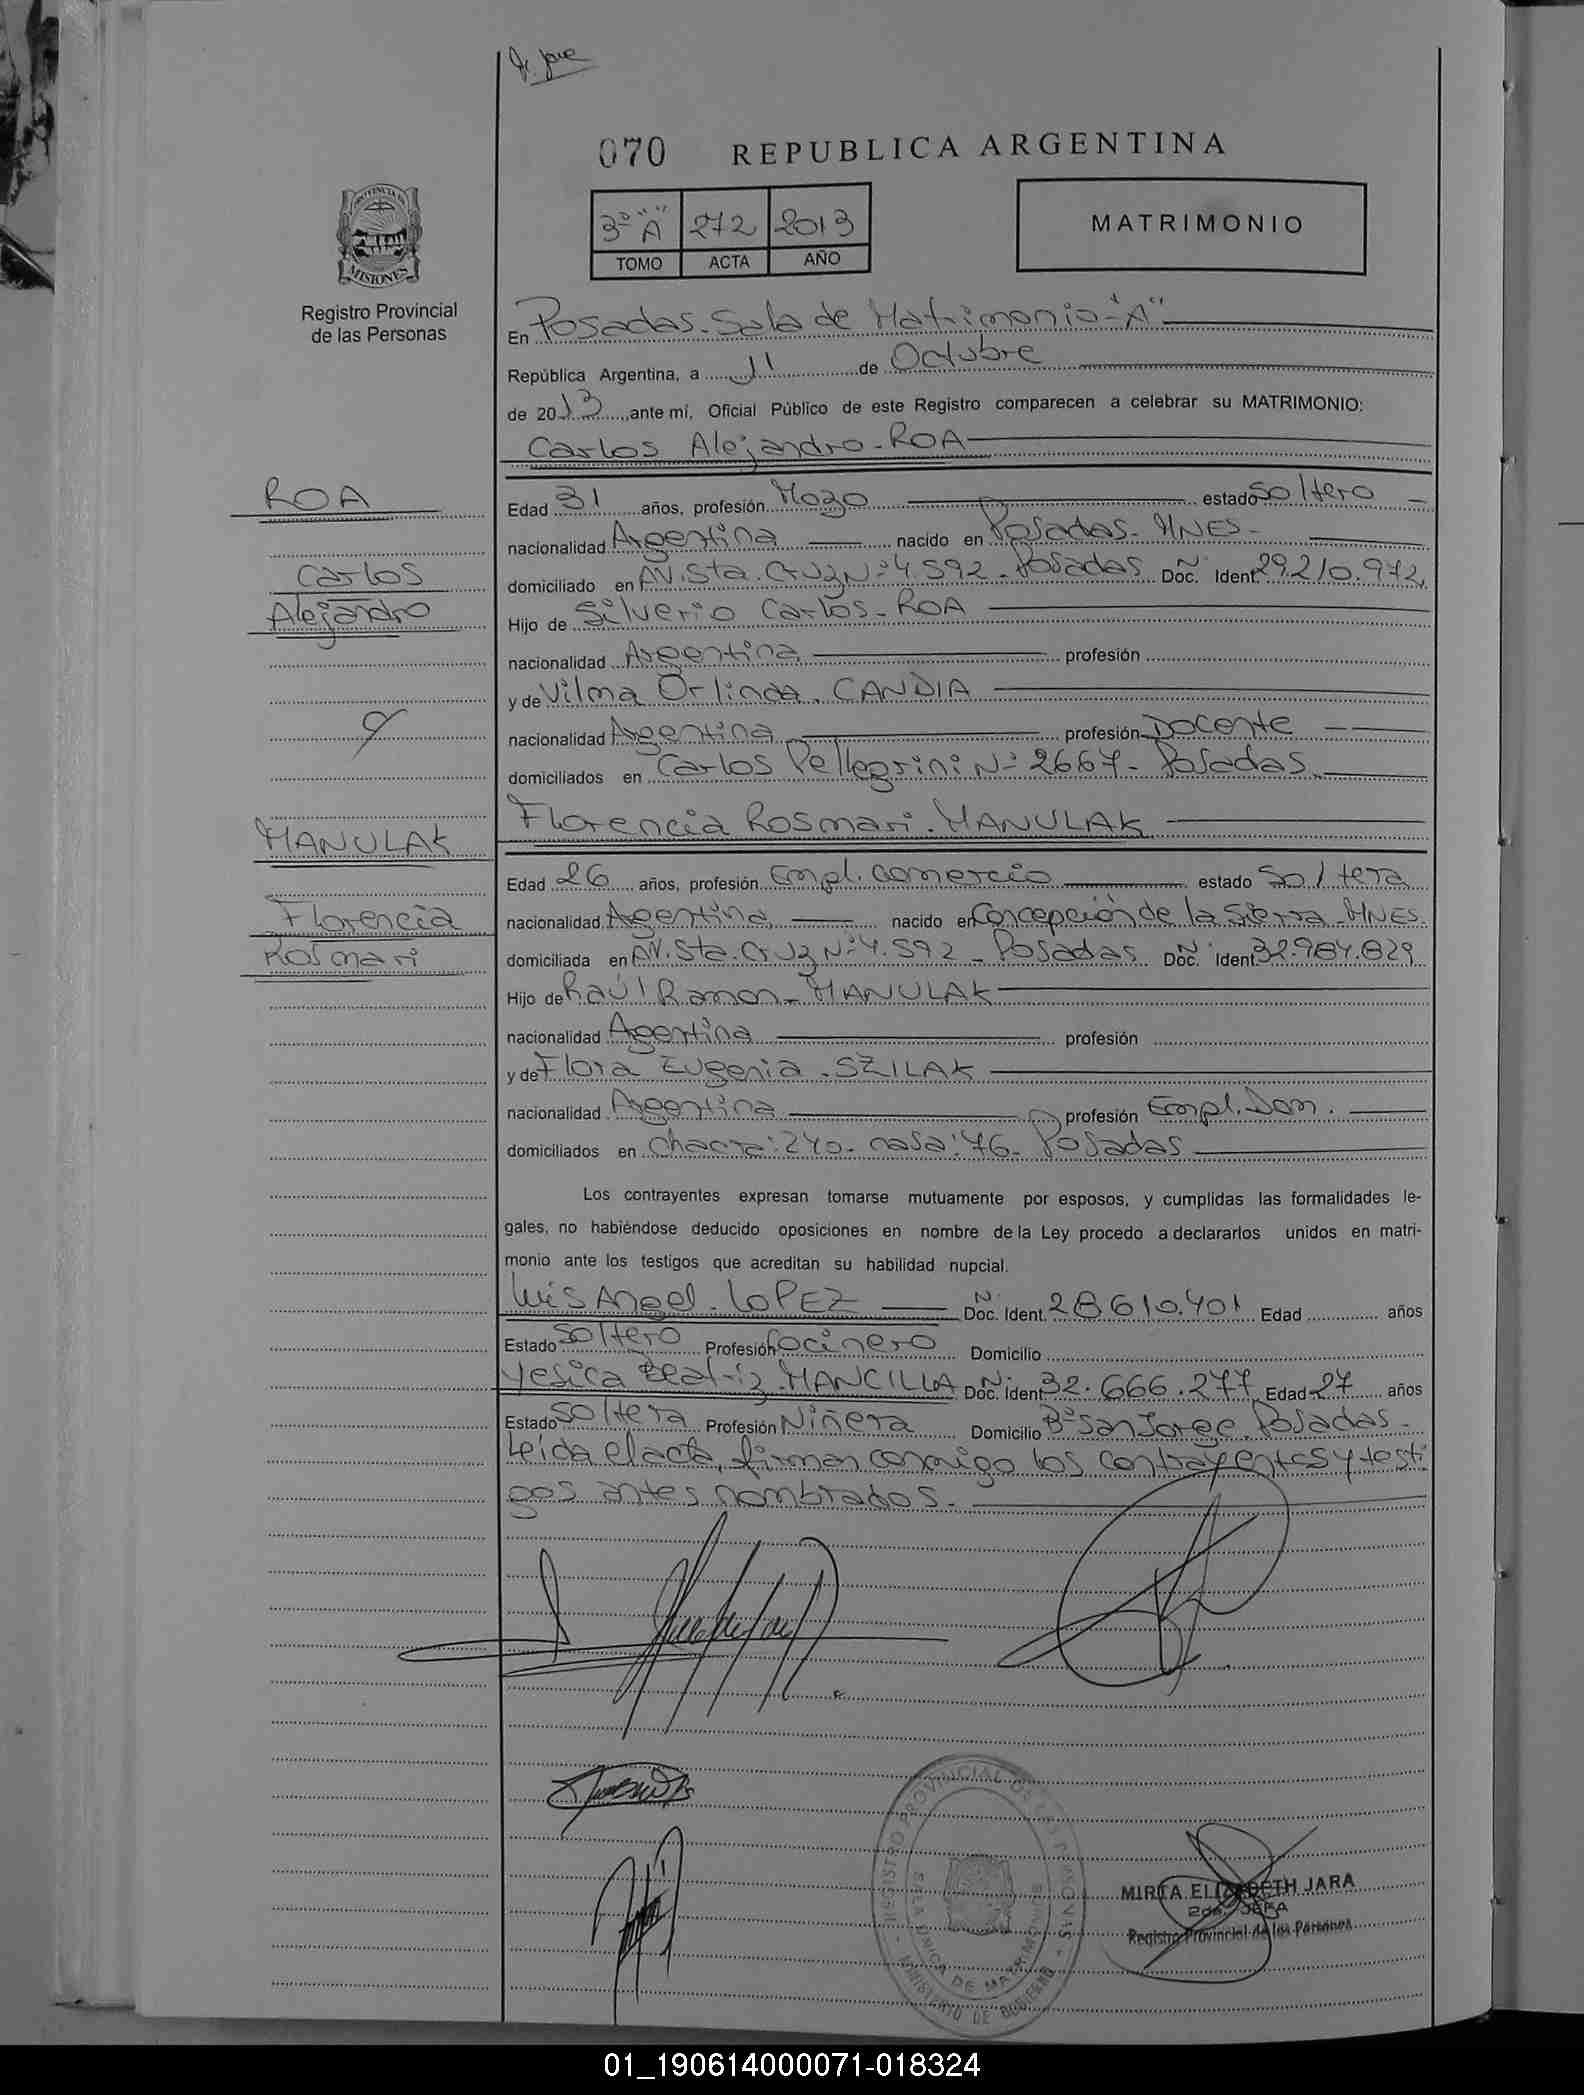 070 REPUBLICA ARGENTINA
PROVINCIA DE
MISIONES
Registro Provincial
de las Personas
3º "A" 272 2013
TOMO ACTA AÑO
MATRIMONIO
En Posadas. Sala de Matrimonio "A"
República Argentina, a 11 de Octubre
de 2013, ante mí, Oficial Público de este Registro comparecen a celebrar su MATRIMONIO:
Carlos Alejandro - ROA
ROA
Carlos
Alejandro
Edad 31 años, profesión Mozo estado Soltero
nacionalidad Argentina nacido en Posadas - MNES -
domiciliado en AV. Sta. Cruz Nº 4.592 - Posadas Doc. Nº Ident. 29.210.972
Hijo de Silverio Carlos - ROA
nacionalidad Argentina profesión
y de Vilma Orlinda. CANDIA
nacionalidad Argentina profesión Docente
domiciliados en Carlos Pellegrini Nº 2667 - Posadas.
Florencia Rosmari. MANULAK
MANULAK
Florencia
Rosmari
Edad 26 años, profesión Empl. comercio estado Soltera
nacionalidad Argentina, nacido en Concepción de la Sierra - MNES.
domiciliada en AV. Sta. Cruz Nº 4.592 - Posadas Doc. Nº Ident. 32.984.829
Hijo de Raúl Ramon - MANULAK
nacionalidad Argentina profesión
y de Flora Eugenia. SZILAK
nacionalidad Argentina profesión Empl. Dom.
domiciliados en chacra: 240 - casa: 76 - Posadas
Los contrayentes expresan tomarse mutuamente por esposos, y cumplidas las formalidades le-
gales, no habiéndose deducido oposiciones en nombre de la Ley procedo a declararlos unidos en matri-
monio ante los testigos que acreditan su habilidad nupcial.
Luis Angel. LOPEZ Doc. Nº Ident. 28.610.401 Edad años
Estado Soltero Profesión Cocinero Domicilio
Yesica Beatriz. MANCILLA Doc. Nº Ident. 32.666.277 Edad 27 años
Estado Soltera Profesión Niñera Domicilio Bº San Jorge. Posadas -
Leída el acta, firman conmigo los contrayentes y testi
gos antes nombrados. -
REGISTRO PROVINCIAL DE LAS PERSONAS
SALA UNICA DE MATRIMONIOS
MINISTERIO DE GOBIERNO
MIRTA ELIZABETH JARA
2da. JEFA
Registro Provincial de las Personas
01_190614000071-018324